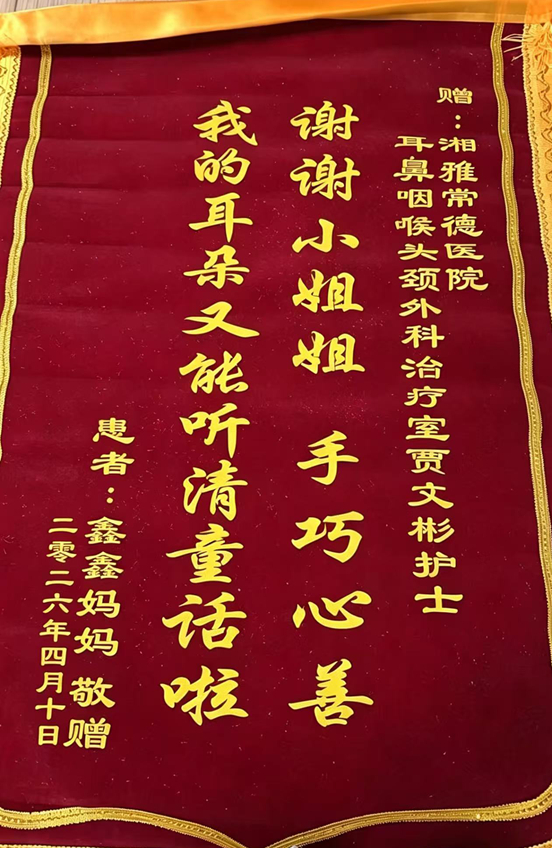 赠：湘雅常德医院
耳鼻咽喉头颈外科治疗室贾文彬护士
谢谢小姐姐 手巧心善
我的耳朵又能听清童话啦
患者：鑫鑫妈妈 敬赠
二零二六年四月十日